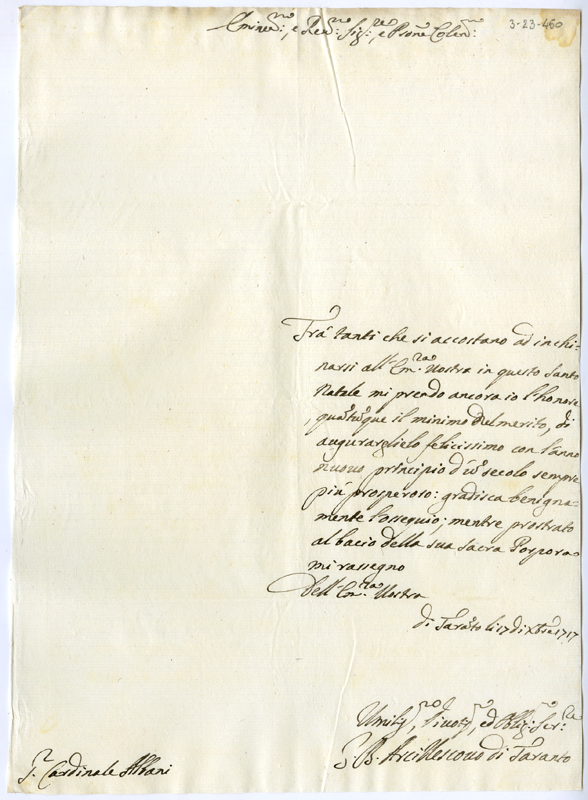 3-23-460
Eminen:mo, e Rev:mo Sig:re, e Prōne Colen:mo
Trà tanti che si accostano ad inchi-
narsi all'Em:za Vostra in questo Santo
Natale mi prendo ancora io l'honore
, quātūque il minimo del merito, di
augurarglielo felicissimo con l'anno
nuovo principio d'ū secolo sempre
più prosperoso: gradisca benigna-
mente l'ossequio; mentre prostrato
al bacio della sua Sacra Porpora
mi rassegno
Dell'Em:za Vostra
di Tarāto li 17 di Xbre 1717
Umiliss:mo, Divotiss:mo, ed Obbligs:mo Ser:
G. B. Arcivescovo di Taranto
Sr Cardinale Albani